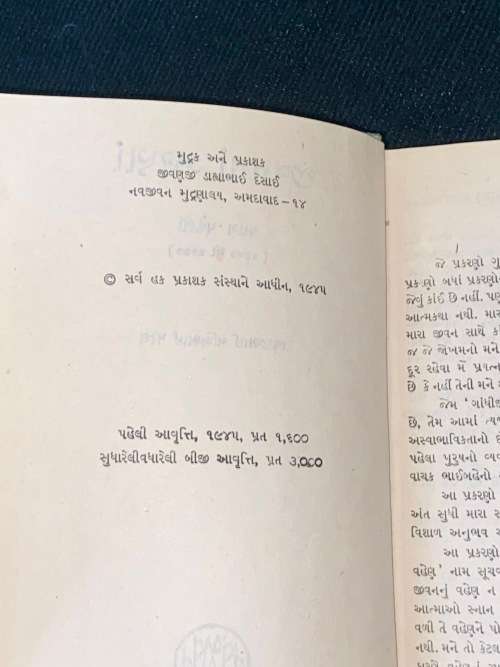 મુદ્રક અને પ્રકાશક
જીવણજી ડાહ્યાભાઈ દેસાઈ
નવજીવન મુદ્રણાલય, અમદાવાદ - ૧૪
© સર્વ હક પ્રકાશક સંસ્થાને આધીન, ૧૯૪૫
પહેલી આવૃત્તિ, ૧૯૪૫, પ્રત ૧,૬૦૦
સુધારેલીવધારેલી બીજી આવૃત્તિ, પ્રત ૩,૦૦૦
જે પ્રકરણો
પ્રકરણો બધાં પ્રકરણો
જેવું કાંઈ છે નહીં. પણ
આત્મકથા નથી.
મારા જીવન સાથે
જ જે જોખમનો મને
દૂર રહેવા મેં
છે કે નહીં તેની મને
જેમ
છે, તેમ આમાં
અસ્વાભાવિકતાનો
પહેલા પુરુષનો
વાચક ભાઈબહેનો
આ પ્રકરણો
અંત સુધી મારા
વિશાળ અનુભવ
આ પ્રકરણો
વહેણ' નામ
જીવનનું વહેણ ન
આત્માઓ સ્નાન
વળી તે વહેણને
નથી. મને તો